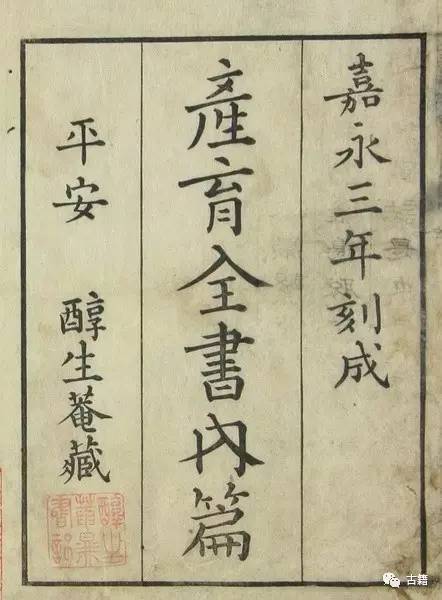 嘉永三年刻成
產育全書內篇
平安 醇生菴藏
古籍